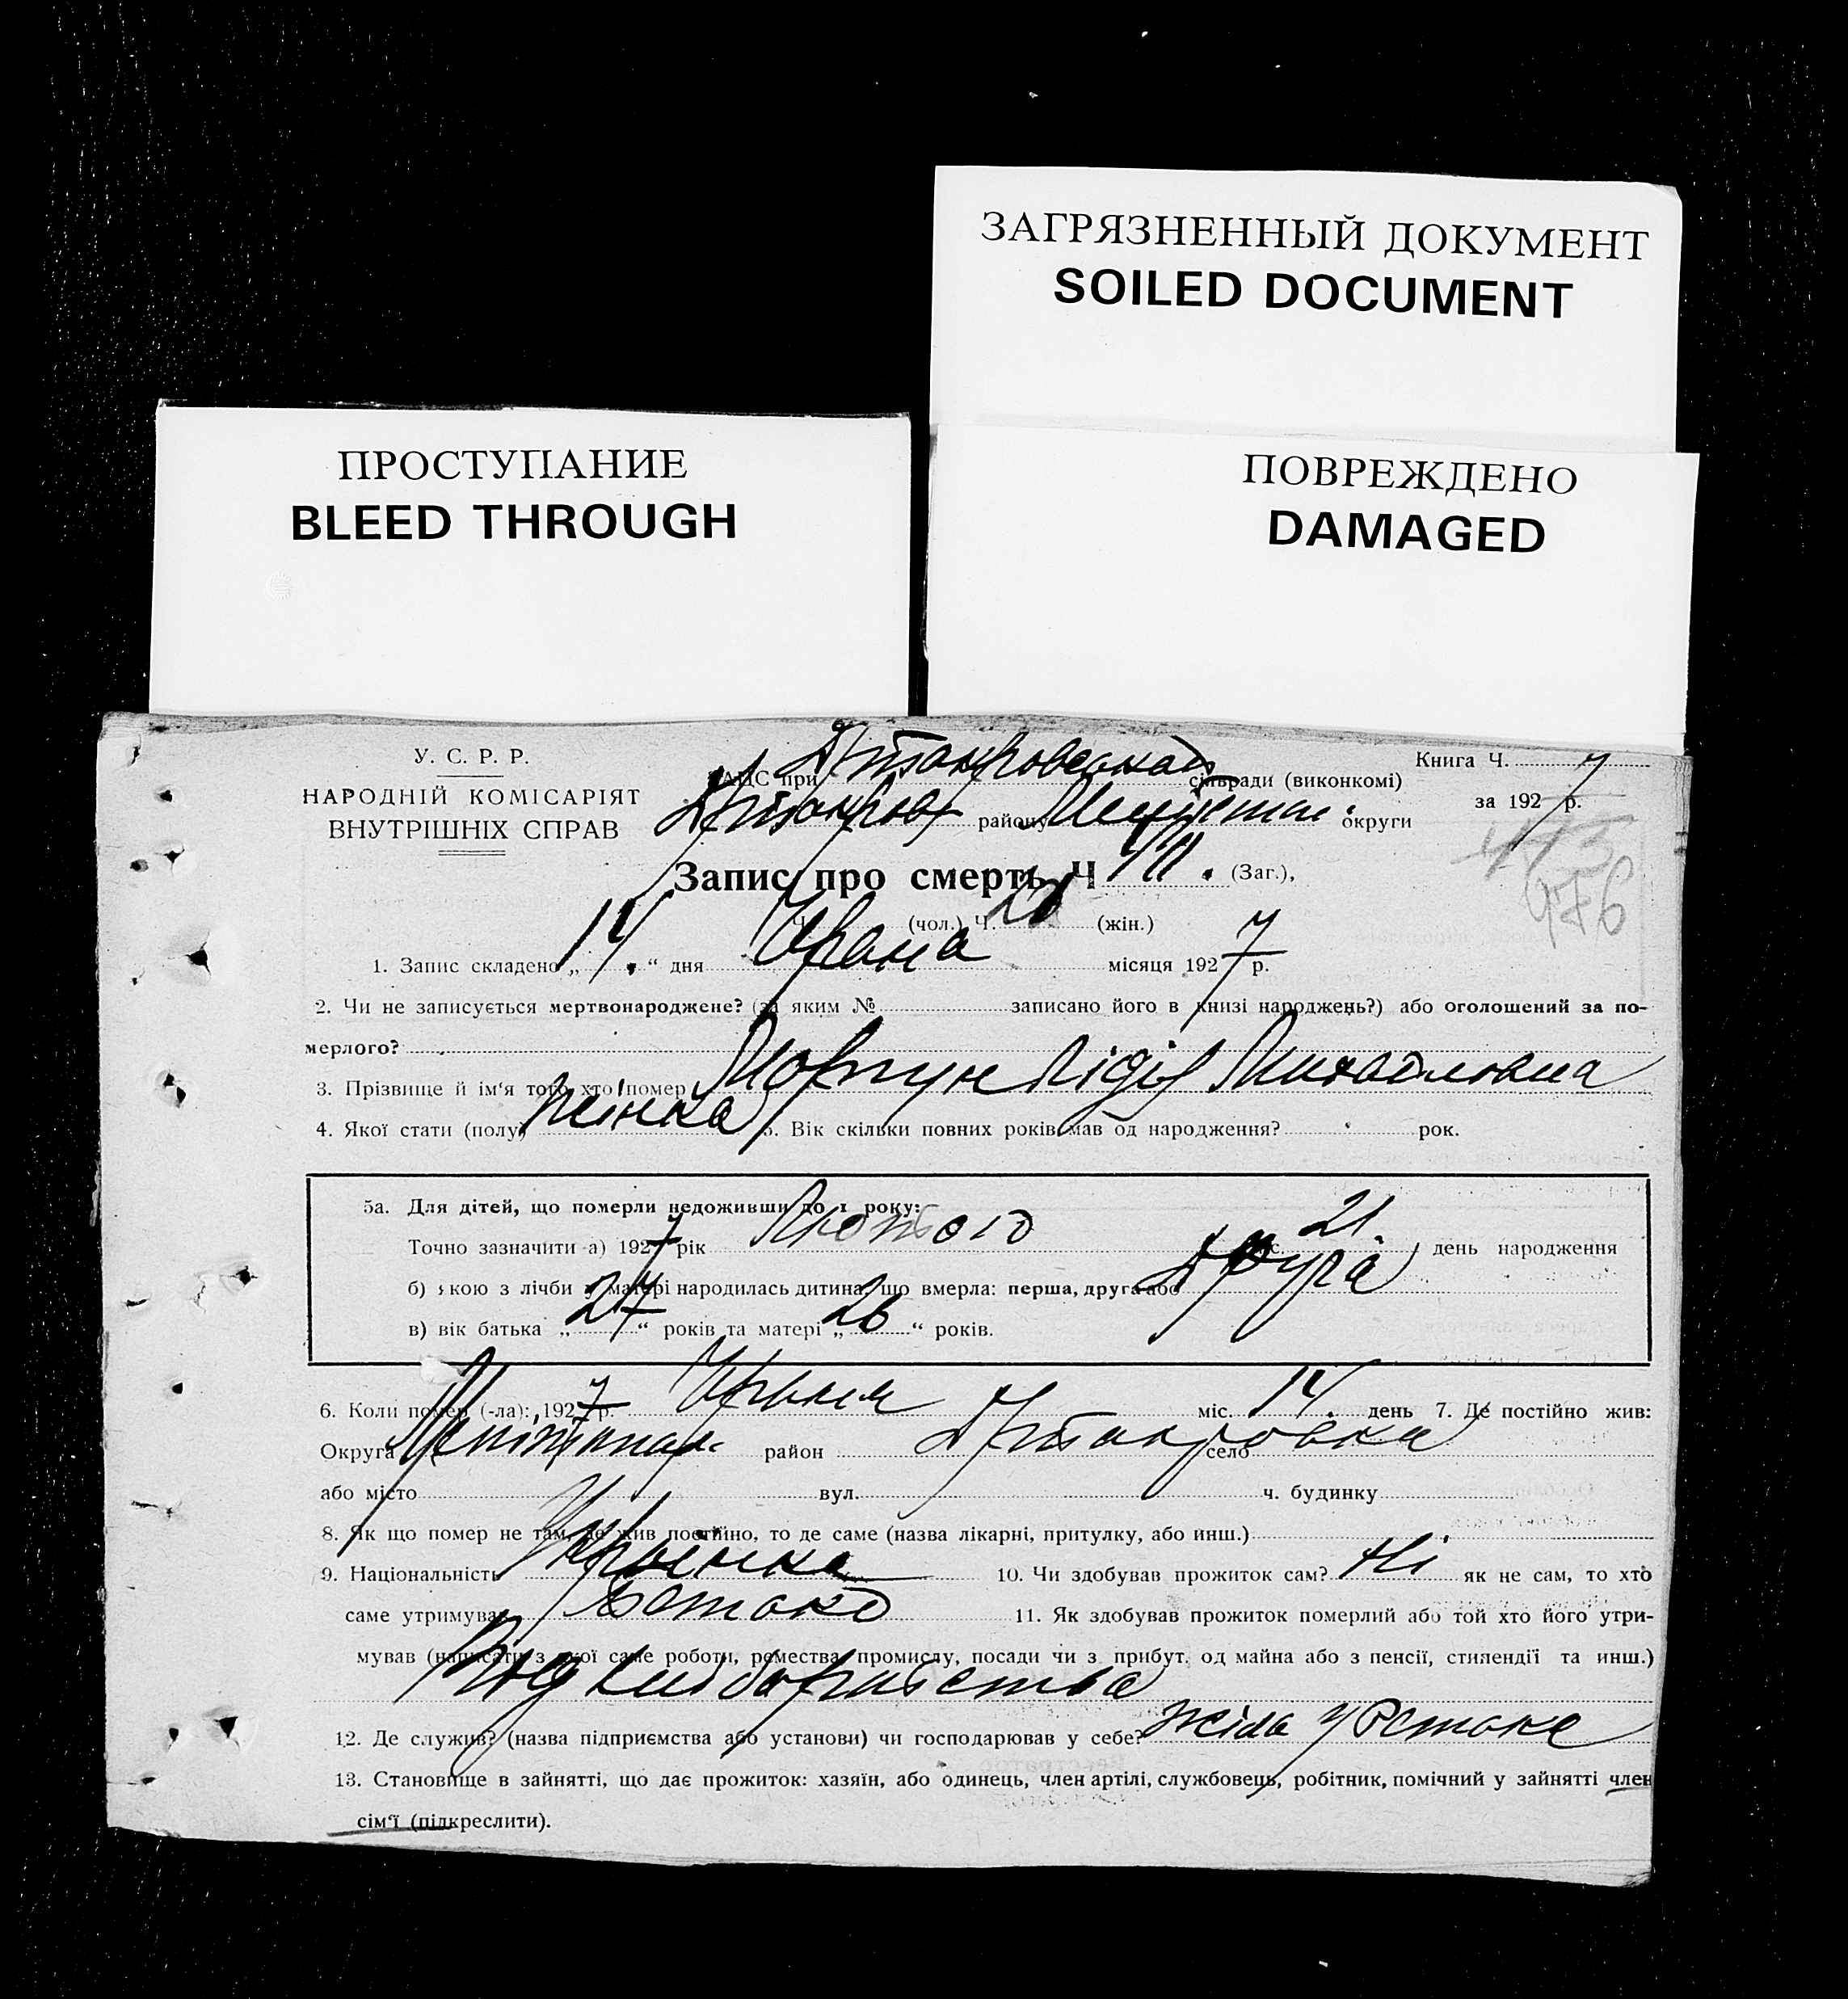 ЗАГРЯЗНЕННЫЙ ДОКУМЕНТ
SOILED DOCUMENT
ПРОСТУПАНИЕ
BLEED THROUGH
ПОВРЕЖДЕНО
DAMAGED
У. С. Р. Р.
НАРОДНІЙ КОМІСАРІЯТ
ВНУТРІШНІХ СПРАВ
при сільради (виконкомі)
району округи
Книга Ч.
за 1927 р.
Запис про смерть Ч (Заг.),
(чол.) Ч. (жін.)
1. Запис складено „ 14. “ дня місяця 1927 р.
2. Чи не записується мертвонароджене? (за яким № записано його в книзі народжень?) або оголошений за по-
мерлого?
3. Прізвище й ім'я того хто помер Моргун Лідія Михайловна
4. Якої стати (полу) Жінка 5. Вік скільки повних років мав од народження? рок.
5а. Для дітей, що померли недоживши до 1 року:
Точно зазначити а) 1927 рік Лютого міс. 21. день народження
б) якою з лічби у матері народилась дитина, що вмерла: перша, друга або друга
в) вік батька „ 27 “ років та матері „ 26 “ років.
6. Коли помер (-ла): 1927 р. міс. 14 день 7. Де постійно жив:
Округа район село
або місто вул. ч. будинку
8. Як що помер не там, де жив постійно, то де саме (назва лікарні, притулку, або инш.)
9. Національність Українка 10. Чи здобував прожиток сам? Ні як не сам, то хто
саме утримував 11. Як здобував прожиток померлий або той хто його утри-
мував (написати з якої саме роботи, ремества, промислу, посади чи з прибут. од майна або з пенсії, стипендії та инш.)
12. Де служив? (назва підприємства або установи) чи господарював у себе?
13. Становище в зайнятті, що дає прожиток: хазяїн, або одинець, член артілі, службовець, робітник, помічний у зайнятті член
сім'ї (підкреслити).